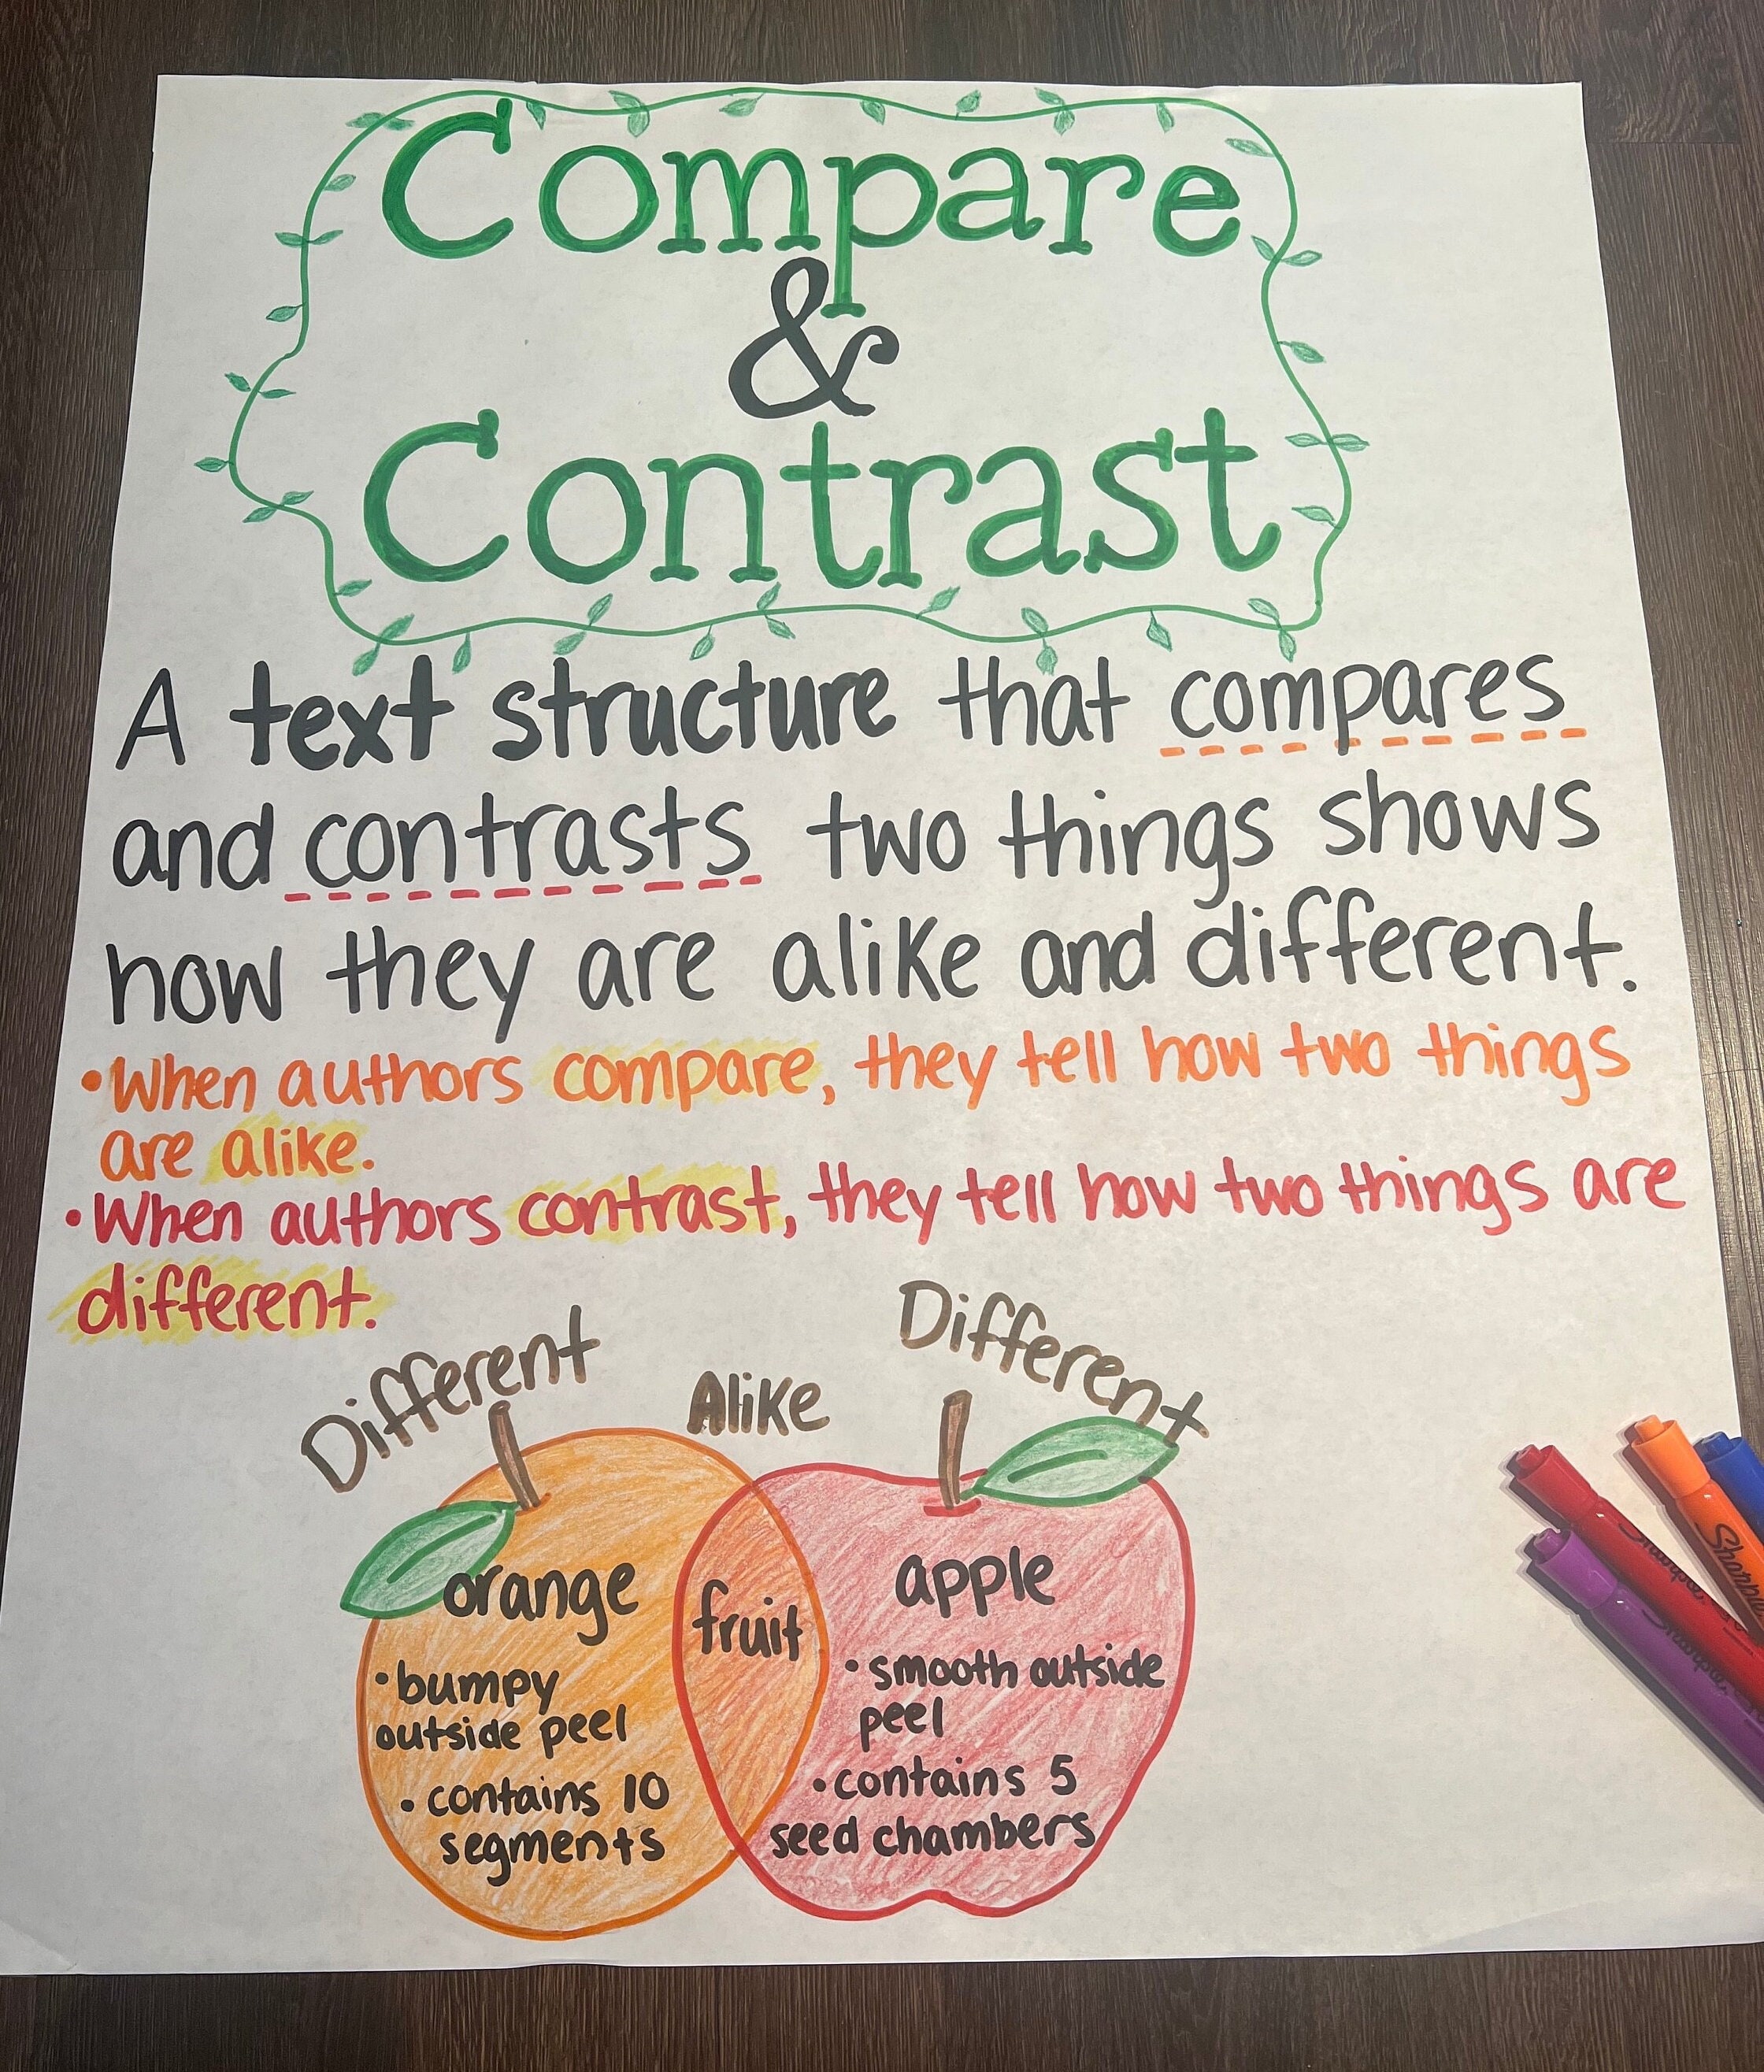 Compare
&
Contrast
A text structure that compares
and contrasts two things shows
how they are alike and different.
•When authors compare, they tell how two things
are alike.
•When authors contrast, they tell how two things are
different.
Different
Alike
Different
orange
•bumpy
outside peel
•contains 10
segments
fruit
apple
•smooth outside
peel
•contains 5
seed chambers
Sharpie
Sharpie
Sharpie